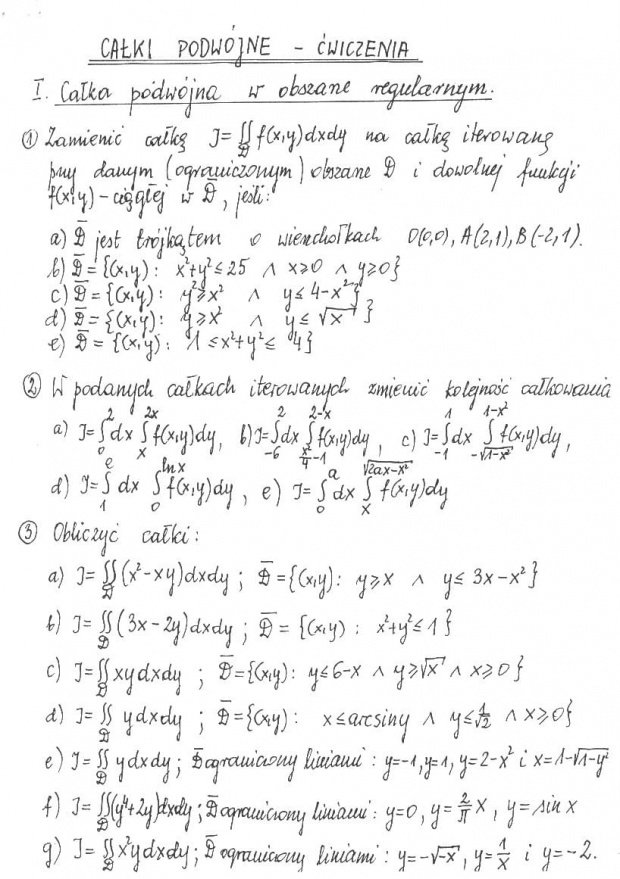 CAŁKI PODWÓJNE - ĆWICZENIA
I. Całka podwójna w obszarze regularnym.
① Zamienić całkę J=∬_D f(x,y)dxdy na całkę iterowaną
przy danym (ograniczonym) obszarze D i dowolnej funkcji
f(x,y) - ciągłej w D̅, jeśli:
a) D̅ jest trójkątem o wierzchołkach O(0,0), A(2,1), B(-2,1).
b) D̅ = {(x,y): x²+y² ≤ 25 ∧ x≥0 ∧ y≥0}
c) D̅ = {(x,y): y²≥x² ∧ y≤4-x²}
d) D̅ = {(x,y): y≥x² ∧ y≤√x}
e) D̅ = {(x,y): 1≤x²+y²≤4}
② W podanych całkach iterowanych zmienić kolejność całkowania
a) J=∫_0^2 dx ∫_x^{2x} f(x,y)dy, b) J=∫_{-6}^2 dx ∫_{x²/4-1}^{2-x} f(x,y)dy, c) J=∫_{-1}^1 dx ∫_{-√(1-x²)}^{1-x²} f(x,y)dy,
d) J=∫_1^e dx ∫_0^{lnx} f(x,y)dy, e) J=∫_0^a dx ∫_x^{√(2ax-x²)} f(x,y)dy
③ Obliczyć całki:
a) J=∬_D (x²-xy)dxdy ; D̅={(x,y): y≥x ∧ y≤3x-x²}
b) J=∬_D (3x-2y)dxdy ; D̅={(x,y): x²+y²≤1}
c) J=∬_D xydxdy ; D̅={(x,y): y≤6-x ∧ y≥√x ∧ x≥0}
d) J=∬_D ydxdy ; D̅={(x,y): x≤arcsiny ∧ y≤1/√2 ∧ x≥0}
e) J=∬_D ydxdy ; D̅ ograniczony liniami: y=-1, y=1, y=2-x² i x=1-√(1-y²)
f) J=∬_D (y⁴+2y)dxdy ; D̅ ograniczony liniami: y=0, y=2/π x, y=sin x
g) J=∬_D x²ydxdy ; D̅ ograniczony liniami: y=-√-x, y=1/x i y=-2.